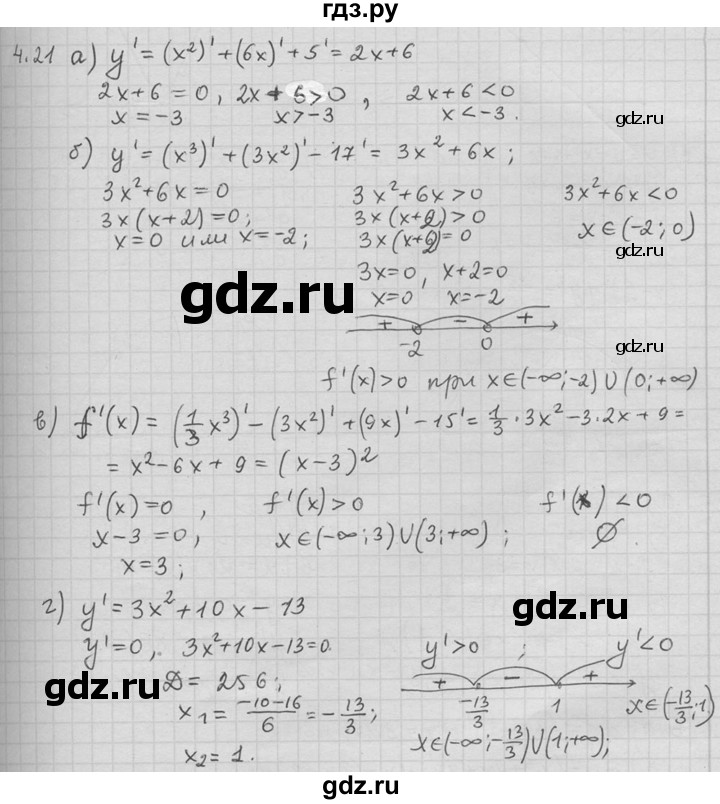 гдз.ру
4.21 а) y' = (x²)' + (6x)' + 5' = 2x + 6
2x + 6 = 0, 2x + 6 > 0, 2x + 6 < 0
x = -3 x > -3 x < -3.
gdz.ru
б) y' = (x³)' + (3x²)' - 17' = 3x² + 6x;
3x² + 6x = 0 3x² + 6x > 0 3x² + 6x < 0
3x(x+2) = 0; 3x(x+2) > 0 x ∈ (-2; 0)
x = 0 или x = -2; 3x(x+2) = 0
gdz.ru
3x = 0, x + 2 = 0
gdz.ru
x = 0 x = -2
+ - +
-2 0
gdz.ru
f'(x) > 0 при x ∈ (-∞; -2) ∪ (0; +∞)
в) f'(x) = (1/3 x³)' - (3x²)' + (9x)' - 15' = 1/3 · 3x² - 3·2x + 9 =
= x² - 6x + 9 = (x-3)²
gdz.ru
f'(x) = 0, f'(x) > 0 f'(x) < 0
x - 3 = 0, x ∈ (-∞; 3) ∪ (3; +∞); ∅.
x = 3;
gdz.ru
г) y' = 3x² + 10x - 13
gdz.ru
y' = 0, 3x² + 10x - 13 = 0. y' > 0; y' < 0
D = 256; + - +
gdz.ru
x₁ = (-10-16)/6 = -13/3; -13/3 1 x ∈ (-13/3; 1)
x₂ = 1. x ∈ (-∞; -13/3) ∪ (1; +∞);
gdz.ru
gdz.ru